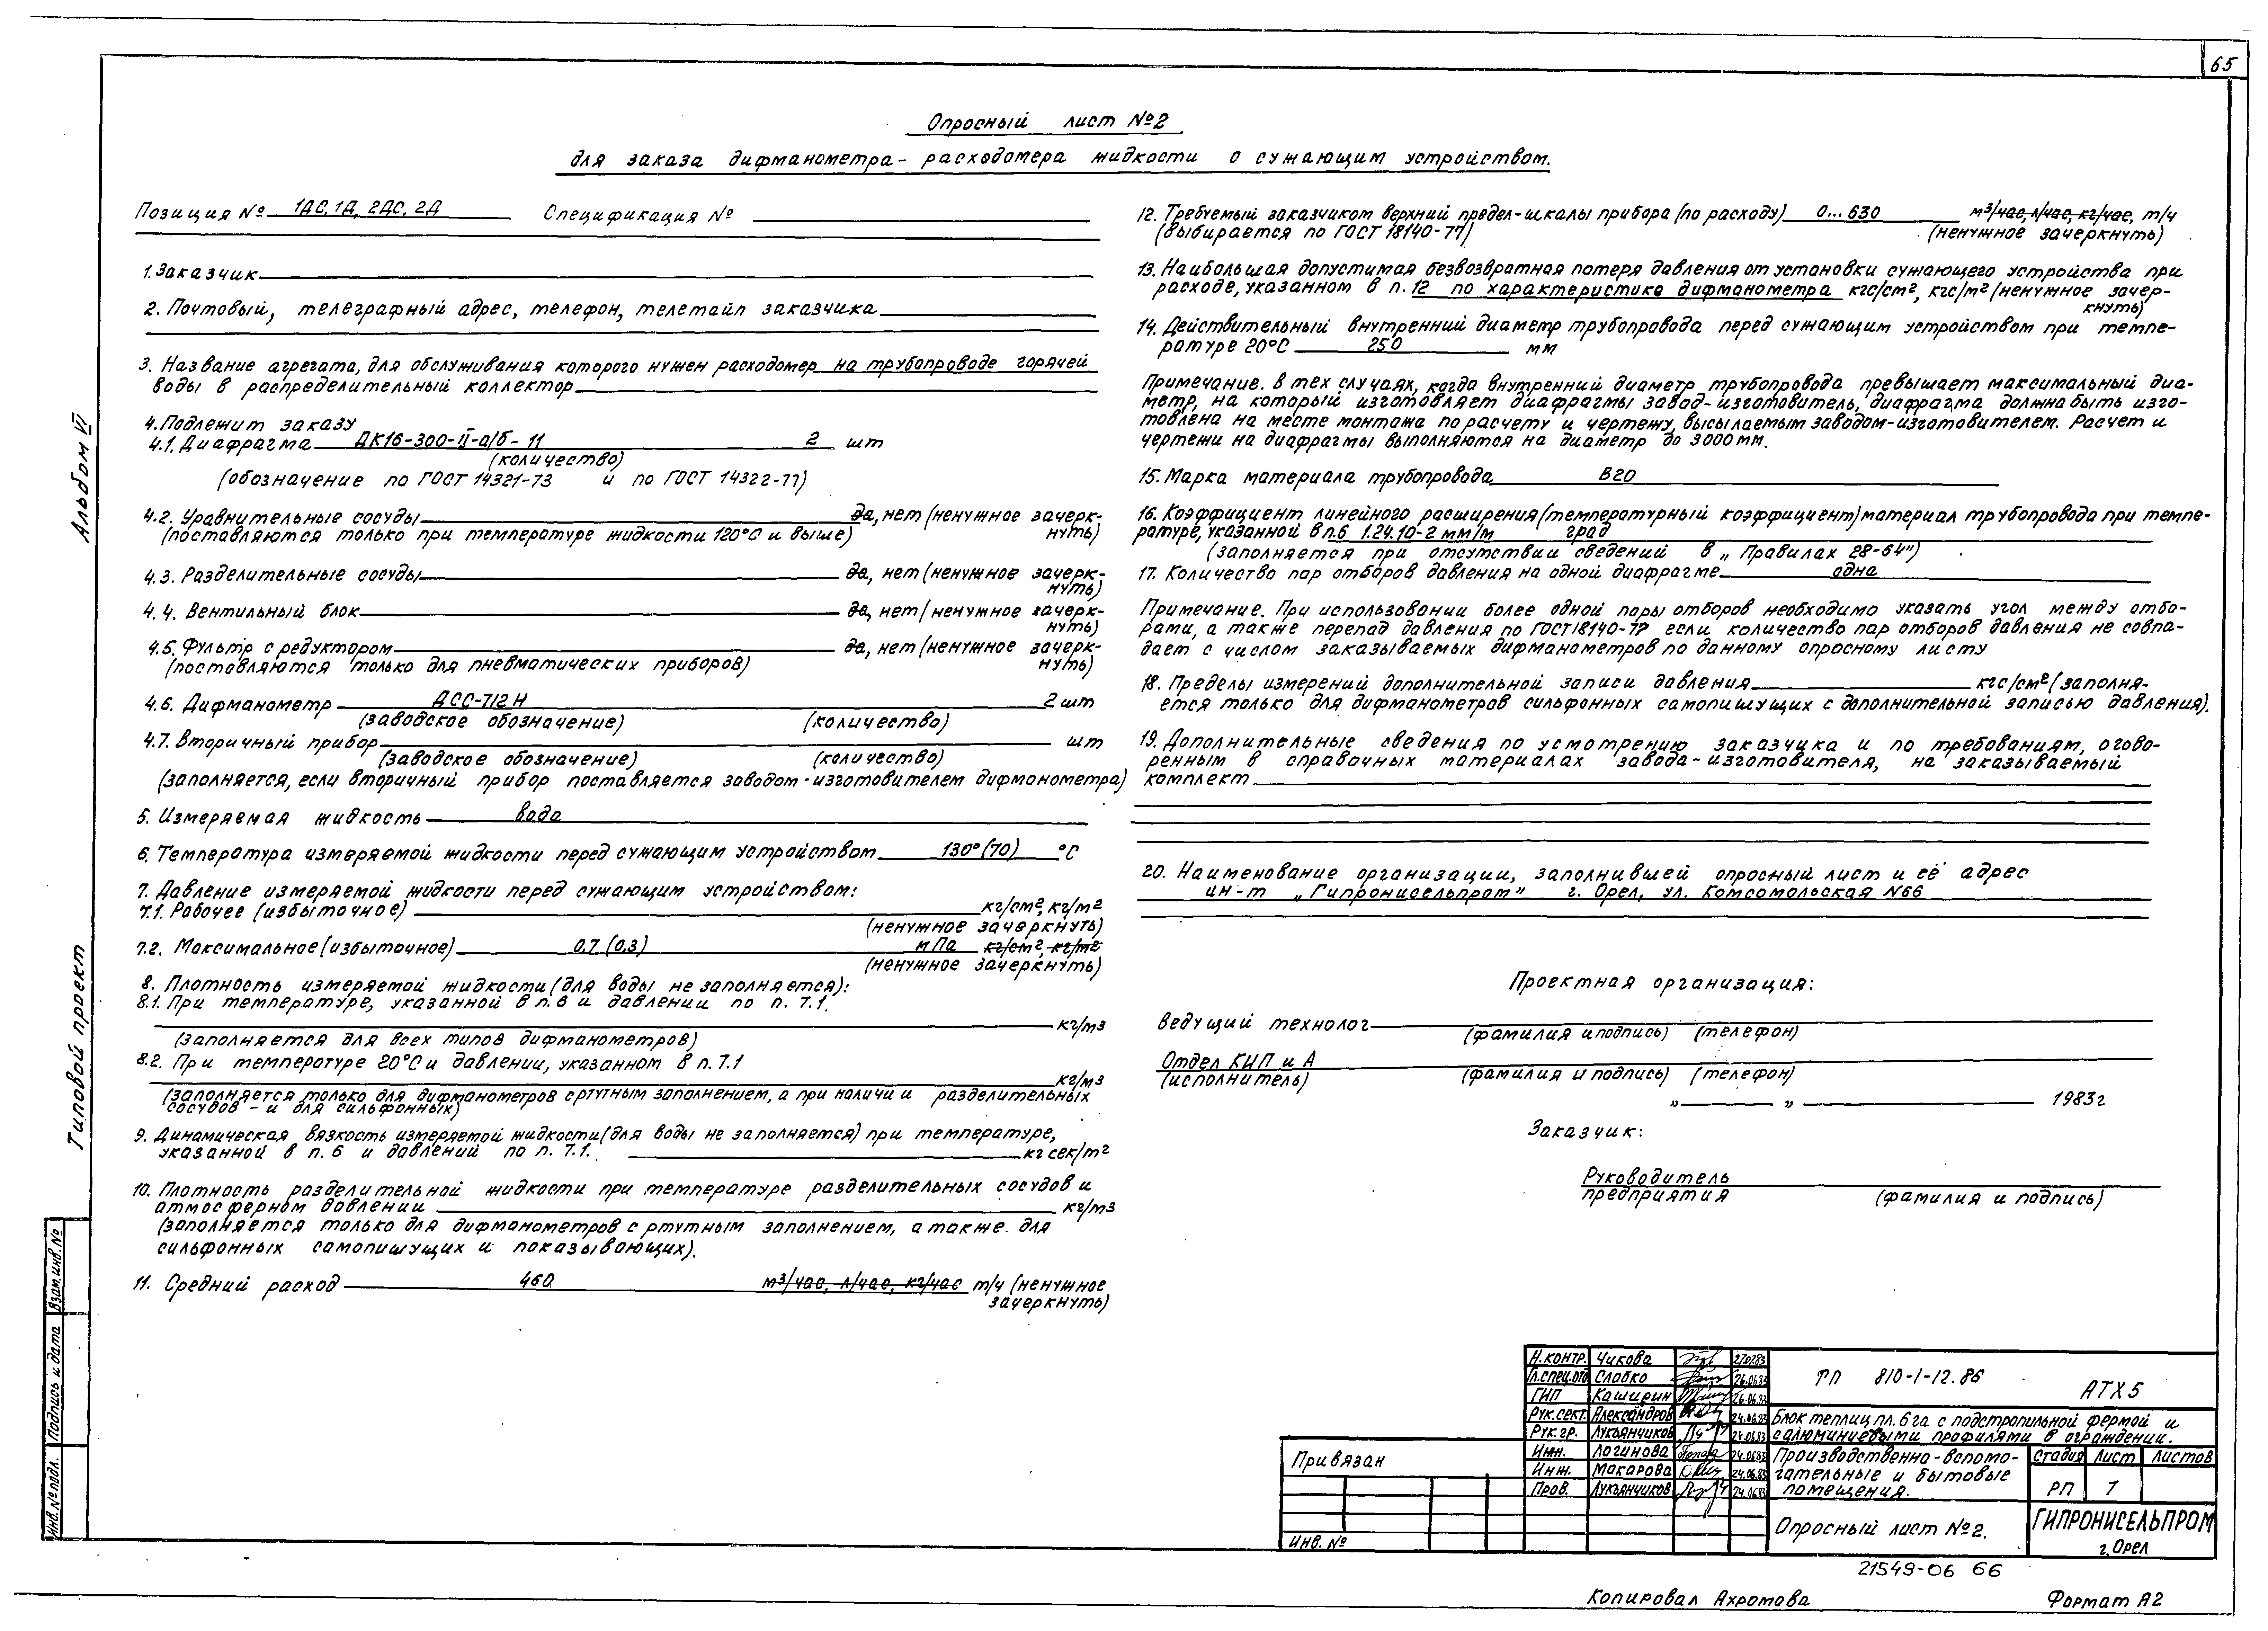 65
Опросный лист №2
для заказа дифманометра- расходомера жидкости с сужающим устройством.
Позиция № 1ДС, 1Д, 2ДС, 2Д Спецификация №
1. Заказчик
2. Почтовый, телеграфный адрес, телефон, телетайп заказчика
3. Название агрегата, для обслуживания которого нужен расходомер на трубопроводе горячей
воды в распределительный коллектор
4. Подлежит заказу
4.1. Диафрагма ДК16-300-II-а/б-11 2 шт
(количество)
(обозначение по ГОСТ 14321-73 и по ГОСТ 14322-77)
4.2. Уравнительные сосуды да, нет (ненужное зачерк-
(поставляются только при температуре жидкости 120°С и выше) нуть)
4.3. Разделительные сосуды да, нет (ненужное зачерк-
нуть)
4.4. Вентильный блок да, нет (ненужное зачерк-
нуть)
4.5. Фультр с редуктором да, нет (ненужное зачерк-
(поставляются только для пневматических приборов) нуть)
4.6. Дифманометр ДСС-712Н 2 шт
(заводское обозначение) (количество)
4.7. Вторичный прибор шт
(заводское обозначение) (количество)
(заполняется, если вторичный прибор поставляется заводом-изготовителем дифманометра)
5. Измеряемая жидкость вода
6. Температура измеряемой жидкости перед сужающим устройством 130°(70) °С
7. Давление измеряемой жидкости перед сужающим устройством:
7.1. Рабочее (избыточное) кг/см², кг/м²
(ненужное зачеркнуть)
7.2. Максимальное (избыточное) 0,7 (0,3) мПа кг/см², кг/м²
(ненужное зачеркнуть)
8. Плотность измеряемой жидкости (для воды не заполняется):
8.1. При температуре, указанной в п.6 и давлении по п. 7.1.
кг/м3
(заполняется для всех типов дифманометров)
8.2. При температуре 20°С и давлении, указанном в п. 7.1
кг/м3
(заполняется только для дифманометров с ртутным заполнением, а при наличии разделительных
сосудов - и для сильфонных)
9. Динамическая вязкость измеряемой жидкости (для воды не заполняется) при температуре,
указанной в п. 6 и давлений по п. 7.1. кг сек/м²
10. Плотность разделительной жидкости при температуре разделительных сосудов и
атмосферном давлении кг/м3
(заполняется только для дифманометров с ртутным заполнением, а также для
сильфонных самопишущих и показывающих).
11. Средний расход 460 м³/час, л/час, кг/час т/ч (ненужное
зачеркнуть)
12. Требуемый заказчиком верхний предел-шкалы прибора (по расходу) 0...630 м³/час, л/час, кг/час, т/ч
(выбирается по ГОСТ 18140-77) (ненужное зачеркнуть)
13. Наибольшая допустимая безвозвратная потеря давления от установки сужающего устройства при
расходе, указанном в п. 12 по характеристике дифманометра кгс/см², кгс/м² (ненужное зачер-
кнуть)
14. Действительный внутренний диаметр трубопровода перед сужающим устройством при темпе-
ратуре 20°С 250 мм
Примечание. В тех случаях, когда внутренний диаметр трубопровода превышает максимальный диа-
метр, на который изготовляет диафрагмы завод-изготовитель, диафрагма должна быть изго-
товлена на месте монтажа по расчету и чертежу, высылаемым заводом-изготовителем. Расчет и
чертежи на диафрагмы выполняются на диаметр до 3000 мм.
15. Марка материала трубопровода В20
16. Коэффициент линейного расширения (температурный коэффициент) материал трубопровода при темпе-
ратуре, указанной в п.6 1.24.10-2 мм/м град
(заполняется при отсутствии сведений в „Правилах 28-64")
17. Количество пар отборов давления на одной диафрагме одна
Примечание. При использовании более одной пары отборов необходимо указать угол между отбо-
рами, а также перепад давления по ГОСТ 18140-77 если количество пар отборов давления не совпа-
дает с числом заказываемых дифманометров по данному опросному листу
18. Пределы измерений дополнительной записи давления кгс/см² (заполня-
ется только для дифманометров сильфонных самопишущих с дополнительной записью давления).
19. Дополнительные сведения по усмотрению заказчика и по требованиям, огово-
ренным в справочных материалах завода-изготовителя, на заказываемый
комплект
20. Наименование организации, заполнившей опросный лист и её адрес
ин-т „Гипронисельпром" г. Орел, ул. Комсомольская №66
Проектная организация:
ведущий технолог
(фамилия и подпись) (телефон)
Отдел КИП и А
(исполнитель) (фамилия и подпись) (телефон)
„ „ 1983г
Заказчик:
Руководитель
предприятия (фамилия и подпись)
Альбом VI
Типовой проект
Взам. инв. №
Подпись и дата
Инв. № подл.
Привязан
Инв. №
Н.контр. Чикова
Гл.спец.отд Слабко 26.06.83
ГИП Каширин 26.06.83
Рук.сект. Александров 24.06.83
Рук.гр. Лукьянчиков 24.06.83
Инж. Логинова 24.06.83
Инж. Макарова 24.06.83
Пров. Лукьянчиков 24.06.83
ТП 810-1-12.86 АТХ5
Блок теплиц пл. 6 га с подстропильной фермой и
с алюминиевыми профилями в ограждении.
Производственно-вспомо-
гательные и бытовые
помещения.
Стадия Лист Листов
РП 1
Опросный лист №2.
ГИПРОНИСЕЛЬПРОМ
г. Орел
21549-06 66
Копировал Ахромова Формат А2